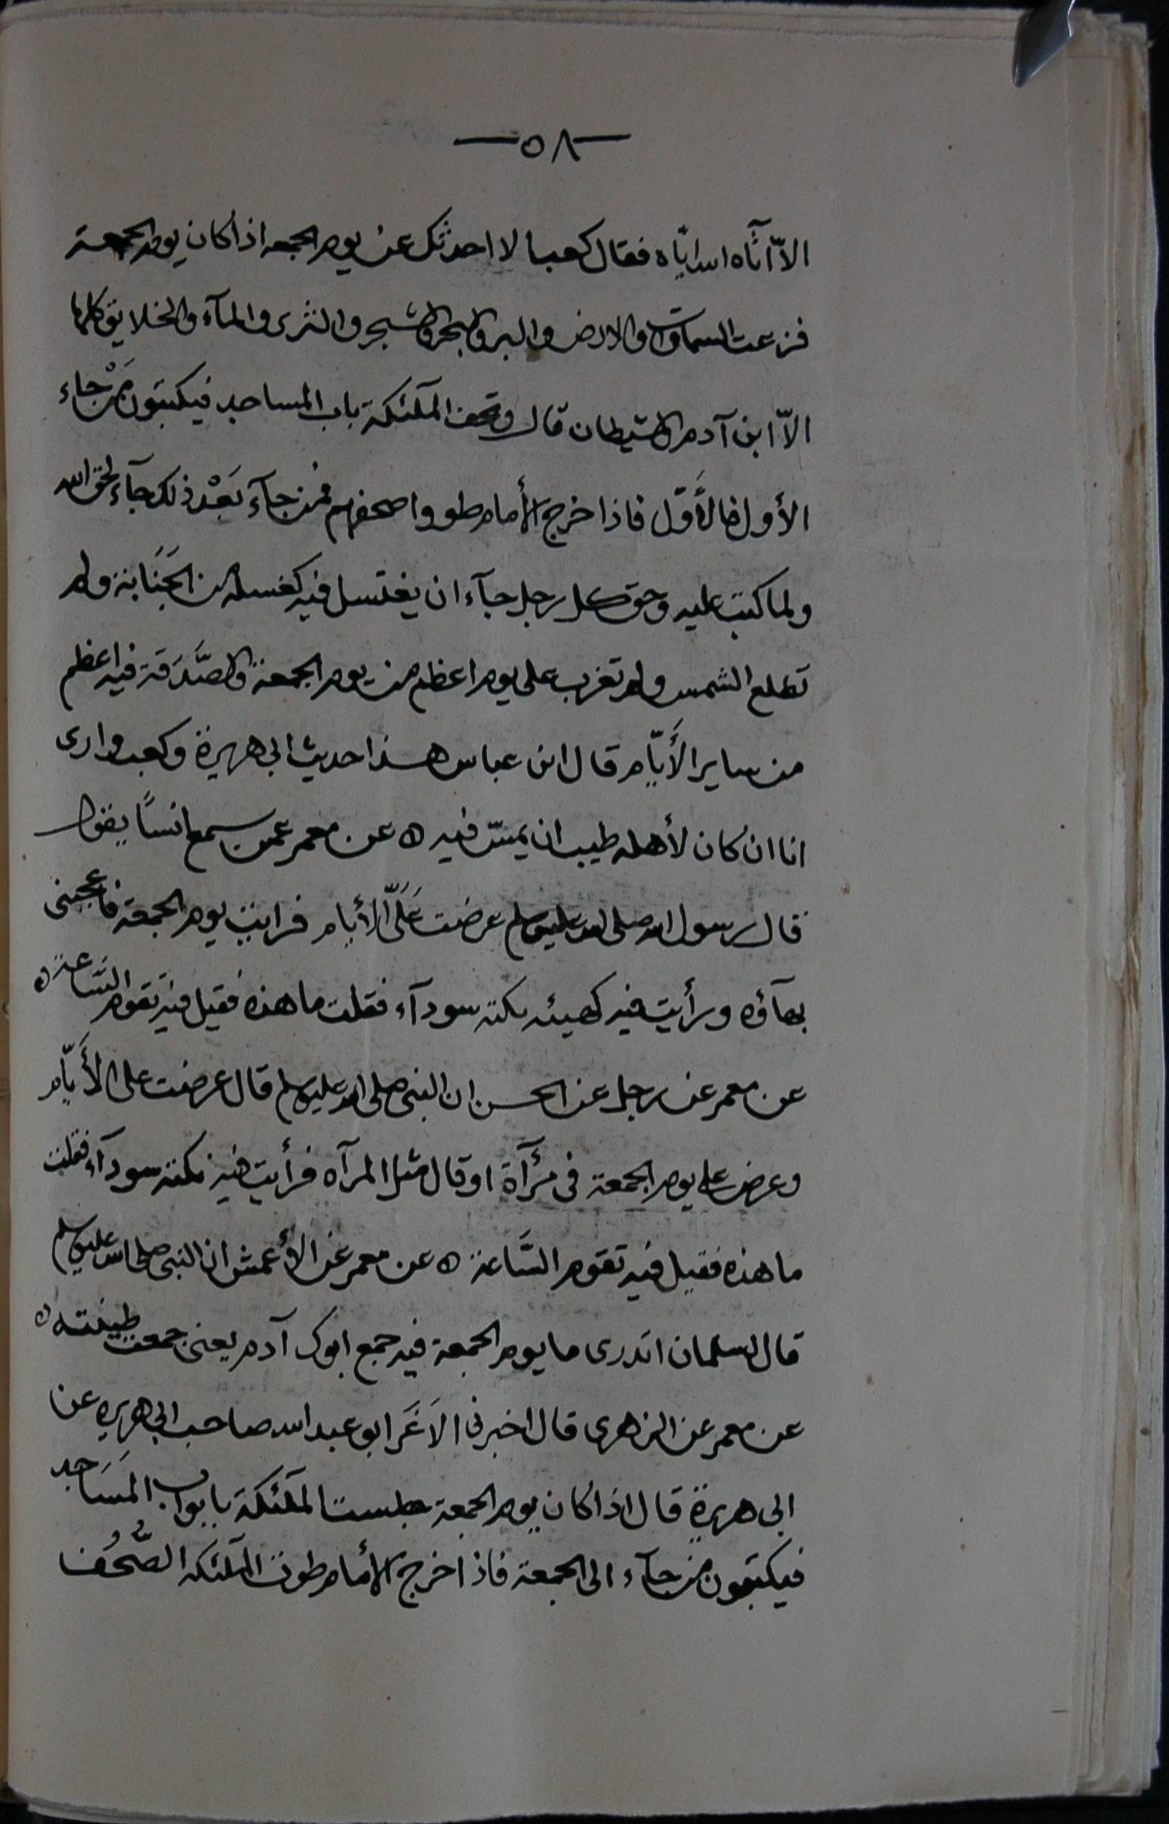 —٥٨—
الّا اتآه الله ايّاه فقال كعبا لا احدثك عن يوم الجمعه اذا كان يوم الجمعة
فزعت السماوات والارض والبر والبحر والشجر والثرى والمآء والخلايق كلها
الّا ابن آدم والشيطان قال وتحف الملٓئكة باب المساجد فيكتبون مَنْ جاء
الأول فالأَوّل فاذا خرج الأمام طووا صحفهم فمن جآء بَعْد ذلك جآء لحق الله
ولما كتب عليه وحق كل رجل جآء ان يغتسل فيه كغسله من الجَنَابة ولم
تطلع الشمس ولم تغرب على يوم اعظم من يوم الجمعة والصَّدَقة فيه اعظم
من ساير الأَيّام قال ابن عباس هذا حديث ابى هريرة وكعب وارى
انا ان كان لأهله طيب ان يمسّ فيه ه عن معمر عمن سمع انسًا يقول
قال رسول الله صلى الله عليه وسلم عرضت عَلَىّ الأيام فرايت يوم الجمعة فاعجبنى
بهآؤه ورأيت فيه كهيئه نكتة سودآء فقلت ما هذه فقيل فيه تقوم السَّاعة ه
عن معمر عن رجل عن الحسن ان النبى صلى الله عليه وسلم قال عرضت على الأَيّام
وعرض على يوم الجمعة فى مرأَٓة او قال مثل المرآه فرأيت فيه نكتة سودآء فقلت
ما هذه فقيل فيه تقوم السَّاعة ه عن معمر عن الأعمش ان النبى صلى الله عليه وسلم
قال لسلمان اتدرى ما يوم الجمعة فيه جمع ابوك آدم يعنى جمعت طينته ه
عن معمر عن الزهرى قال اخبرنى الاَغَر ابو عبد الله صاحب ابى هريره عن
ابى هريرة قال اذا كان يوم الجمعة جلست الملٓئكة بابواب المَسَاجد
فيكتبون من جآء الى الجمعة فاذا خرج الأمام طوت الملٓئكة الصُّحُف